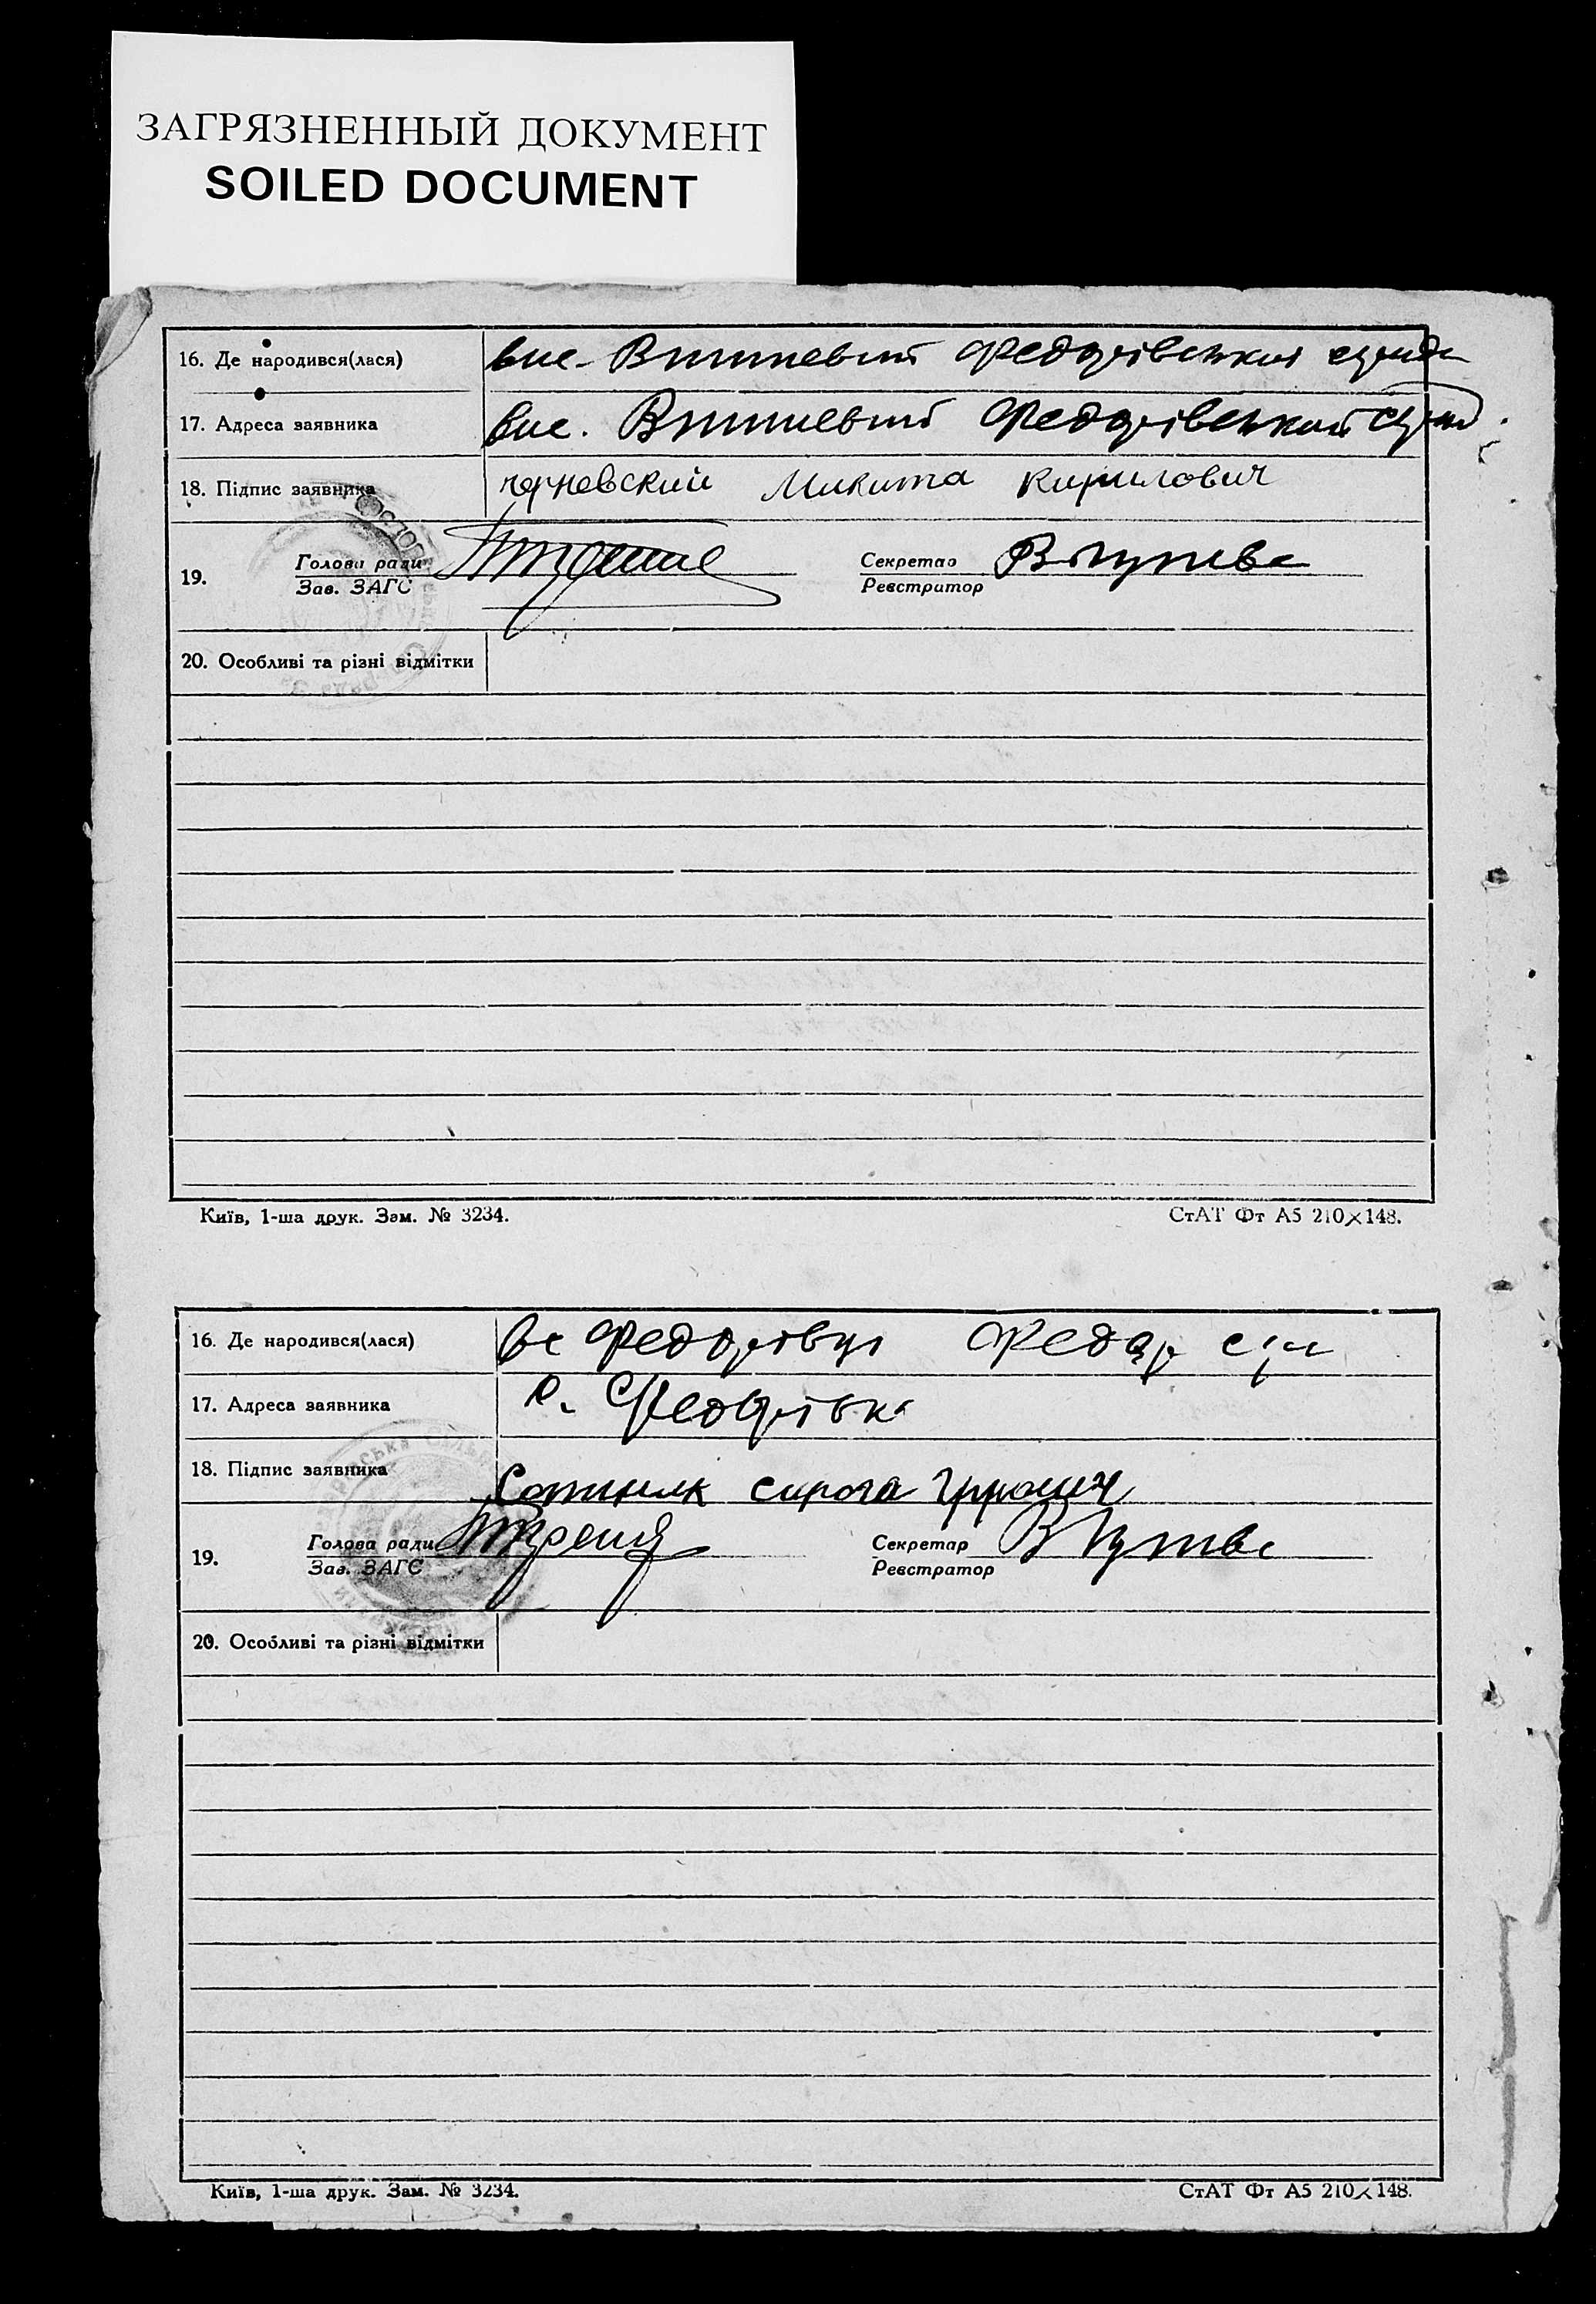 ЗАГРЯЗНЕННЫЙ ДОКУМЕНТ
SOILED DOCUMENT
16. Де народився(лася) вис. Вишневий Федорівської
17. Адреса заявника вис. Вишневий Федорівської
18. Підпис заявника Микита Кирилович
19. Голова ради Секретар
Зав. ЗАГС Реєстратор
20. Особливі та різні відмітки
Київ, 1-ша друк. Зам. № 3234. СтАТ Фт А5 210×148.
16. Де народився(лася)
17. Адреса заявника с. Федорівка
18. Підпис заявника
19. Голова ради Секретар
Зав. ЗАГС Реєстратор
20. Особливі та різні відмітки
Київ, 1-ша друк. Зам. № 3234. СтАТ Фт А5 210×148.